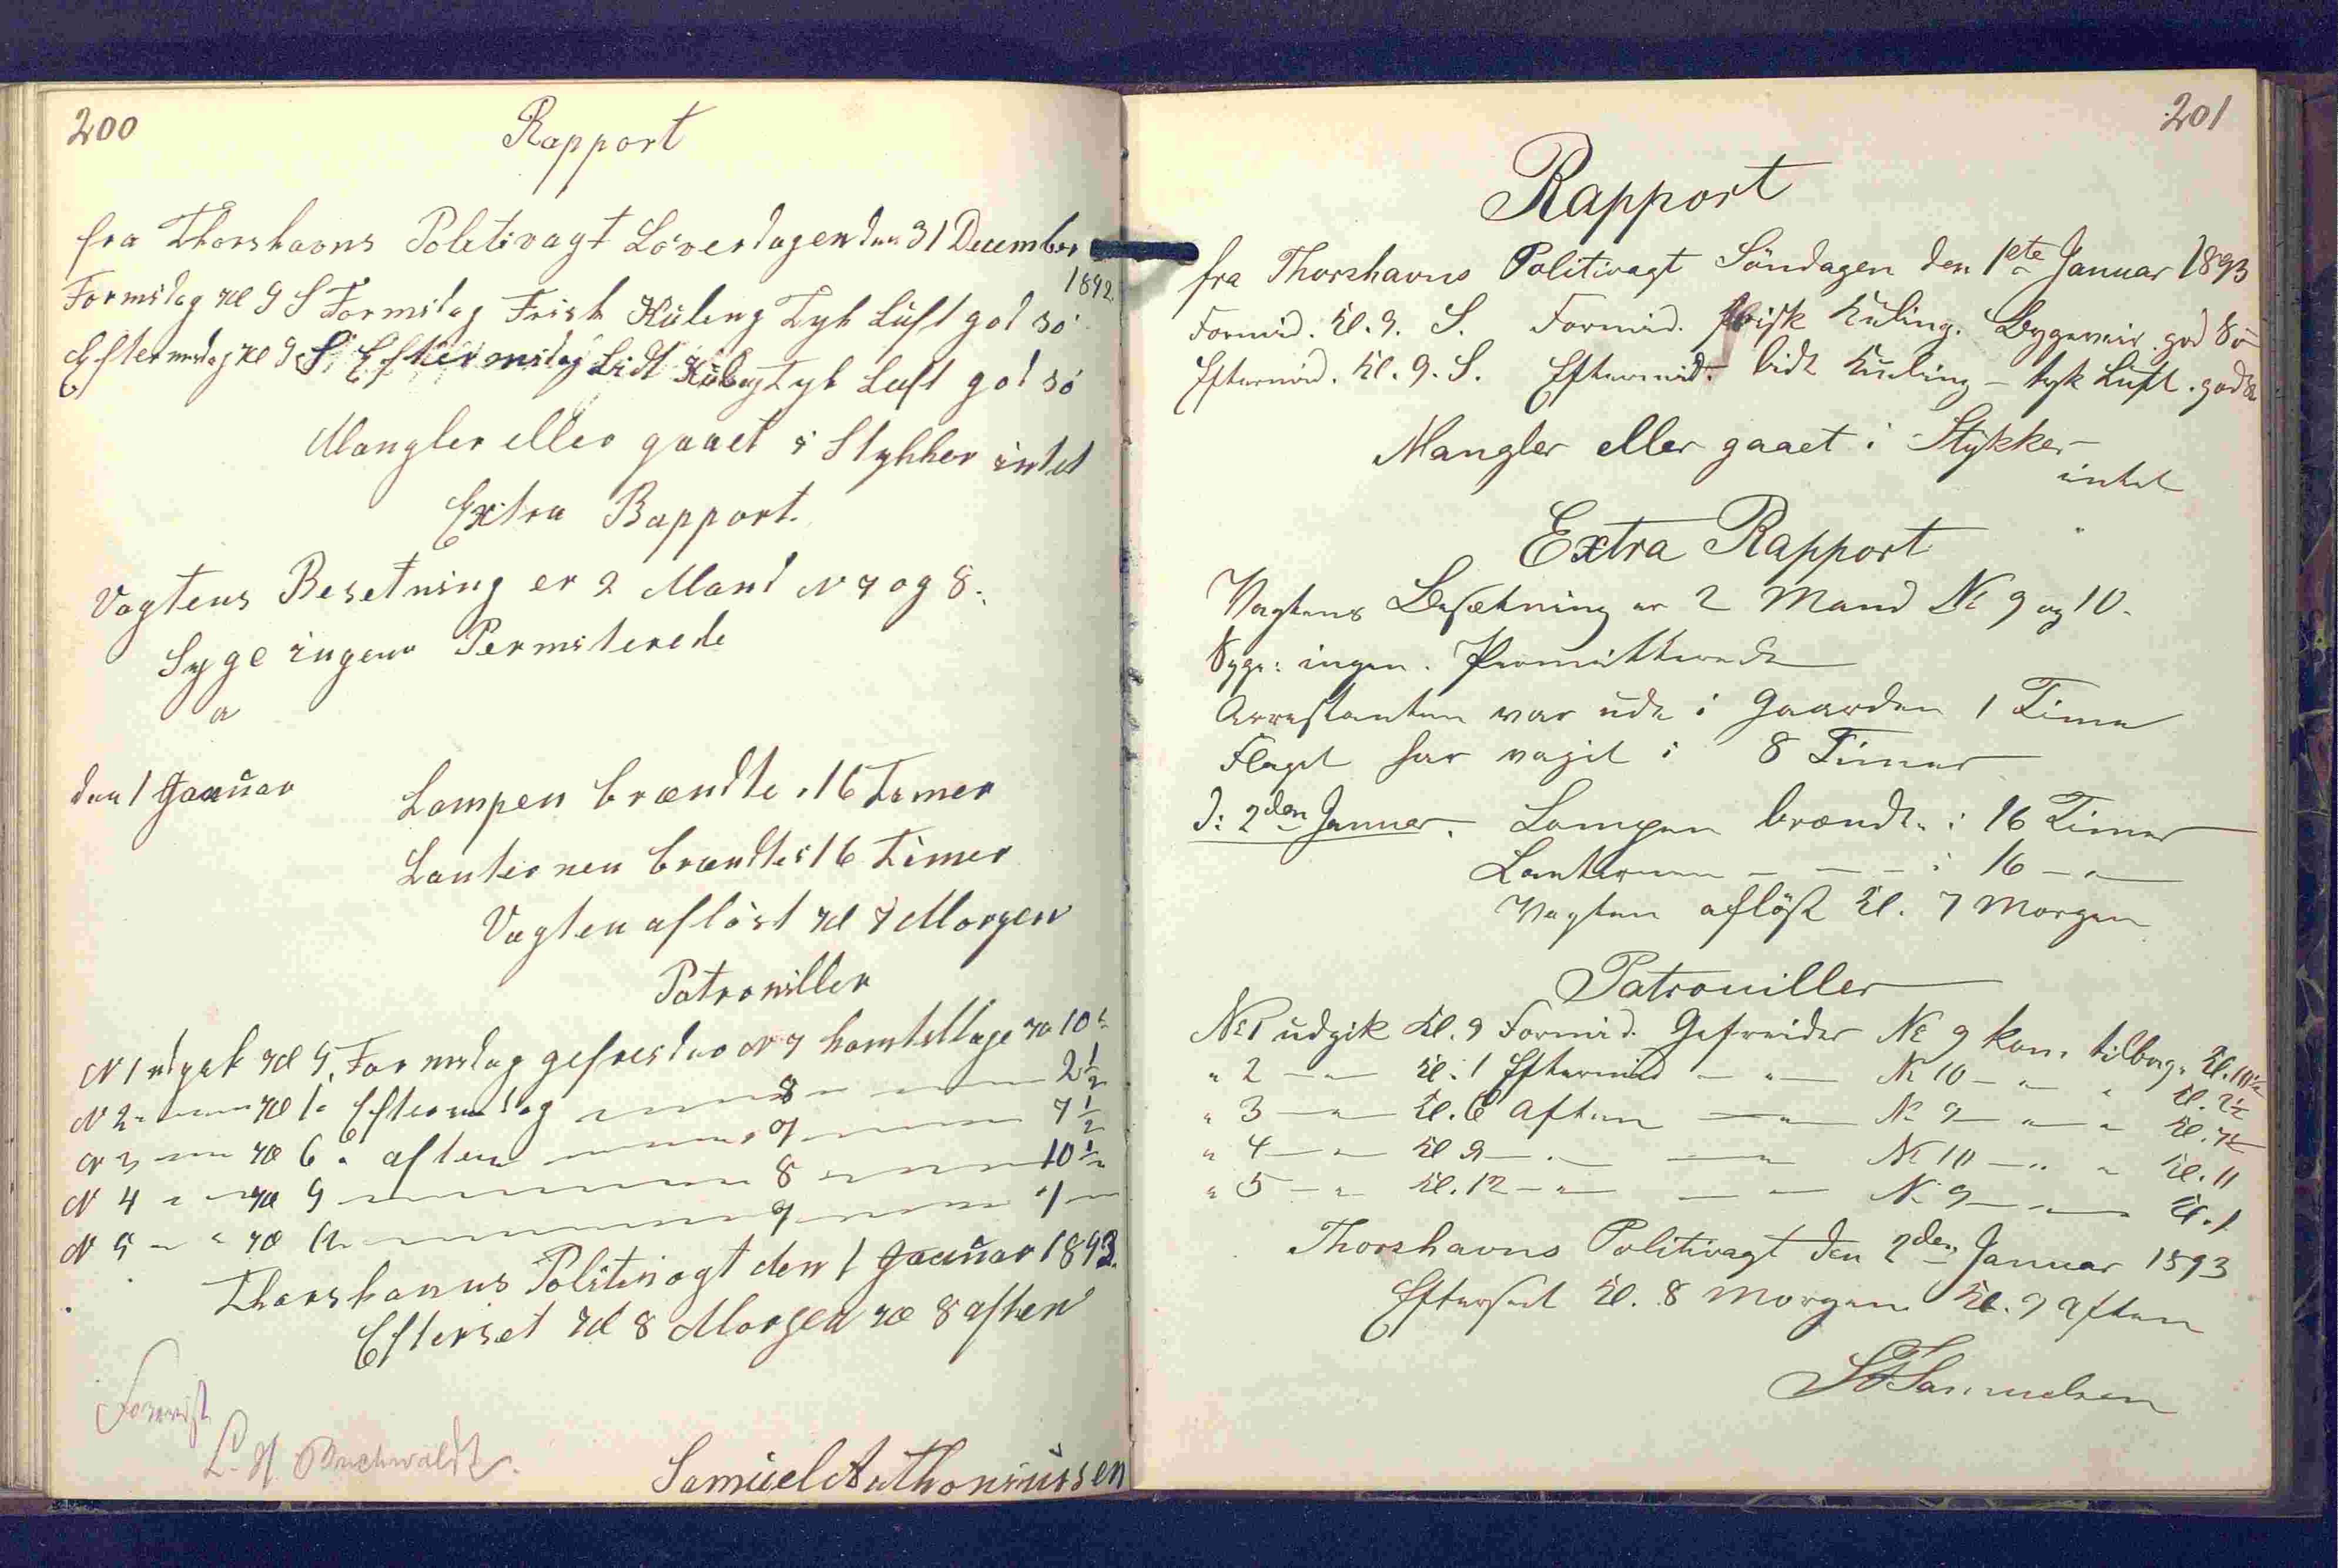 200
Rapport
fra Thorshavns Politivagt Löverdagen den 31 December
1892.
Formidag Kl 9 S Formidag Frisk Kuling Tyk Luft god sö
Eftermidag Kl 9 S. Eftermidag Lidt Kuling Tyk Luft god sö
Mangler eller gaaet i Stykker intet
Extra Rapport.
Vagtens Besetning er 2 Mand N 7 og 8.
Syge ingen Permiterede
den 1 Januar Lampen brændte i 16 Timer
Lanternen brændte i 16 Timer
Vagten aflöst Kl 7 Morgen
Patrouiller
N 1 udgik Kl 9 Formidag gefreider N 7 kom tilbage Kl 10½
N 2 Kl 1 Eftermidag 8 2½
N 3 Kl 6 aften 7 7½
N 4 Kl 9 8 10½
N 5 Kl 12 7 1
Thorshavns Politivagt den 1 Januar 1893.
Efterset Kl 8 Morgen Kl 8 aften
Forevist
L. H. Buchwaldt.
Samuel A Thomsussen
201
Rapport
fra Thorshavns Politivagt Söndagen den 1ste Januar 1893
Formid. Kl. 9. S. Formid. frisk Kuling. Bygeveir. god Sö
Eftermid. Kl. 9. S. Eftermid. lidt Kuling – tyk Luft. god Sö
Mangler eller gaaet i Stykker –
intet
Extra Rapport
Vagtens Besætning er 2 Mand № 9 og 10.
Syge: ingen. Permitterede
Arrestanten var ude i Gaarden 1 Time
Flaget har vajet i 8 Timer
D: 2den Januar. Lampen brændte i 16 Timer
Lanternen – – – i 16 – " –
Vagten aflöst Kl. 7 Morgen
Patrouiller
№ 1 udgik Kl. 9 Formid. Gefreider № 9 kom tilbage Kl. 10½
" 2 – " – Kl. 1 Eftermid – " – № 10 – " – " Kl. 2½
" 3 – " – Kl. 6 Aften – " – № 9 – " – " Kl. 7½
" 4 – " – Kl 9 – " – – " – № 10 – " – " Kl. 11
" 5 – " – Kl. 12 – " – – " – № 9 – " – Kl. 1
Thorshavns Politivagt den 2den Januar 1893
Efterset Kl. 8 Morgen Kl. 9 Aften
Samuelsen